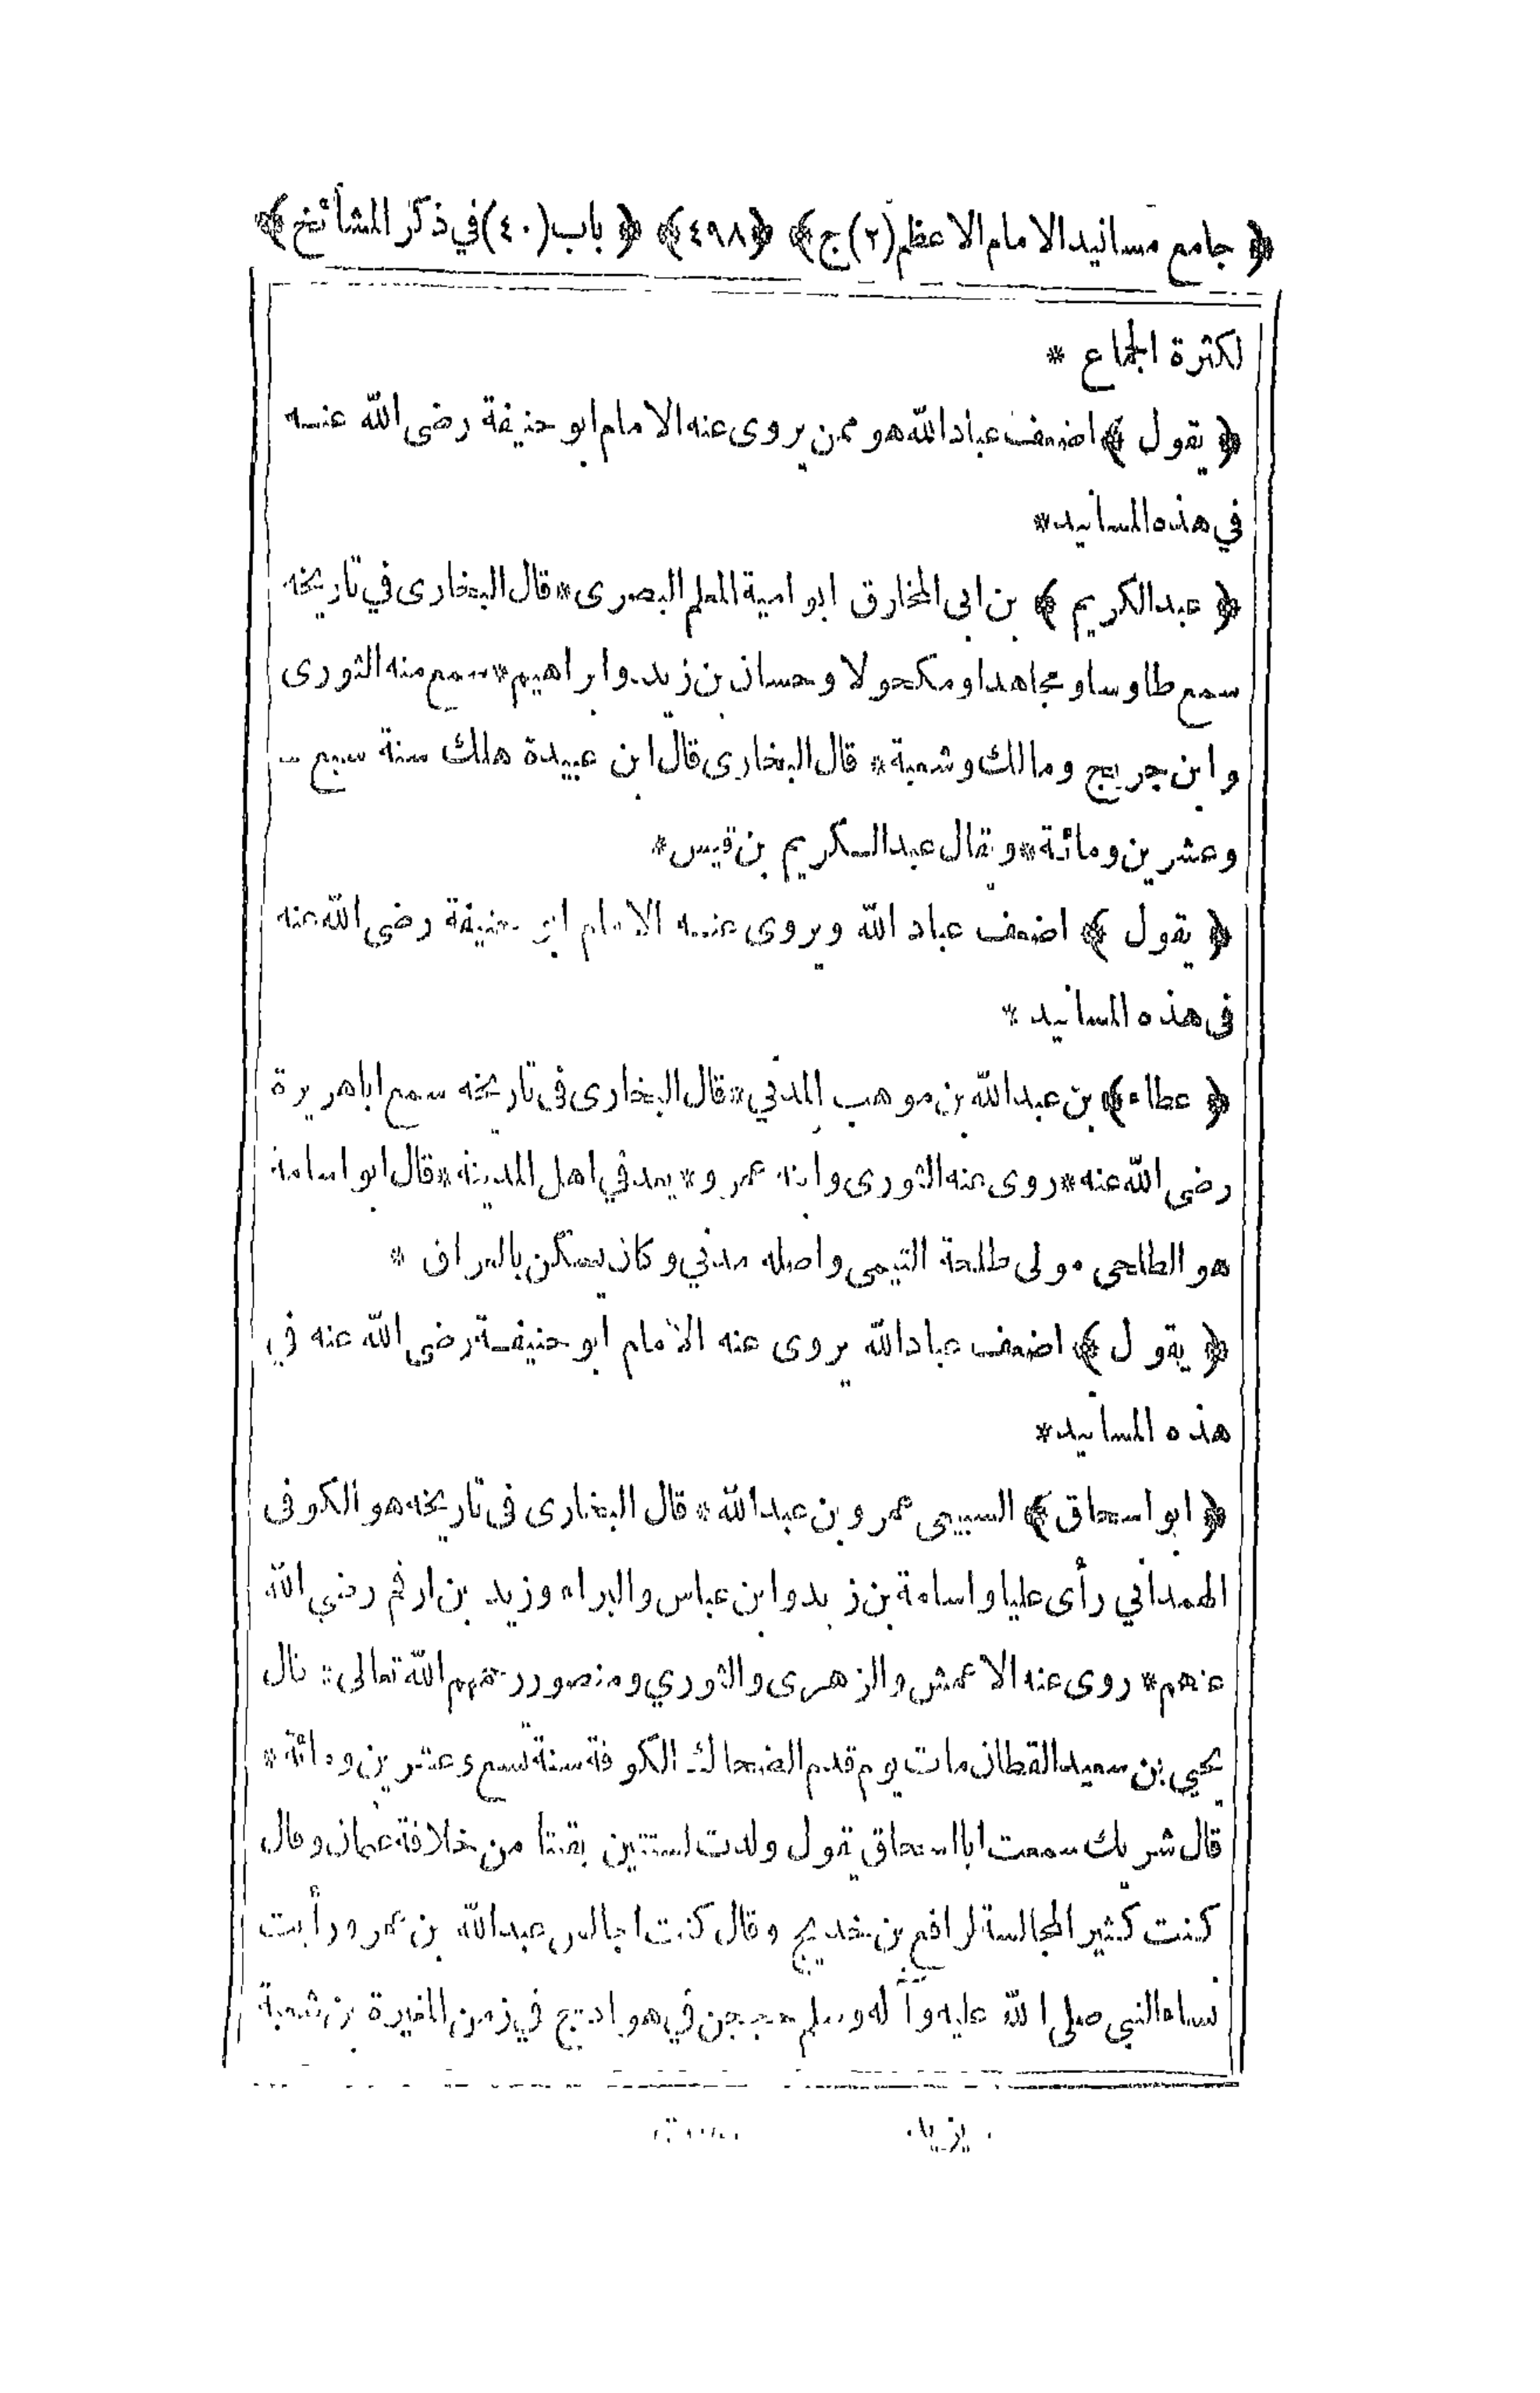 ﴿ جامع مسانيد الامام الاعظم (٢) ج ﴾ ﴿ ٤٩٨ ﴾ ﴿ باب (٤٠) في ذكر المشائخ ﴾
لكثرة الجماع *
﴿ يقول ﴾ اضعف عباد الله هو ممن يروى عنه الامام ابو حنيفة رضى الله عنه
في هذه المسانيد *
﴿ عبد الكريم ﴾ بن ابى المخارق ابو امية المعلم البصرى * قال البخارى في تاريخه
سمع طاوسا و مجاهدا و مكحولا و حسان بن زيد و ابراهيم * سمع منه الثورى
و ابن جريج و مالك و شعبة * قال البخارى قال ابن عيينة هلك سنة سبع
و عشرين و مائة * و يقال عبد الكريم بن قيس *
﴿ يقول ﴾ اضعف عباد الله ويروى عنه الامام ابو حنيفة رضى الله عنه
فى هذه المسانيد *
﴿ عطاء ﴾ بن عبد الله بن موهب المدني * قال البخارى فى تاريخه سمع ابا هريرة
رضى الله عنه * روى عنه الثورى و ابنه عمرو * يعد في اهل المدينة * قال ابو اسامة
هو الطلحى مولى طلحة التيمى و اصله مدني و كان يسكن بالعراق *
﴿ يقول ﴾ اضعف عباد الله يروى عنه الامام ابو حنيفة رضى الله عنه في
هذه المسانيد *
﴿ ابو اسحاق ﴾ السبيعى عمرو بن عبد الله * قال البخارى فى تاريخه هو الكوفى
الهمداني رأى عليا و اسامة بن زيد و ابن عباس و البراء و زيد بن ارقم رضي الله
عنهم * روى عنه الاعمش و الزهرى و الثوري و منصور رحمهم الله تعالى * قال
يحيي بن سعيد القطان مات يوم قدم الضحاك الكوفة سنة تسع و عشرين و مائة *
قال شريك سمعت ابا اسحاق يقول ولدت لسنتين بقيتا من خلافة عثمان و قال
كنت كثير المجالسة لرافع بن خديج و قال كنت اجالس عبد الله بن عمر و رأيت
نساء النبي صلى الله عليه و آله و سلم حججن في هوادج في زمن المغيرة بن شعبة